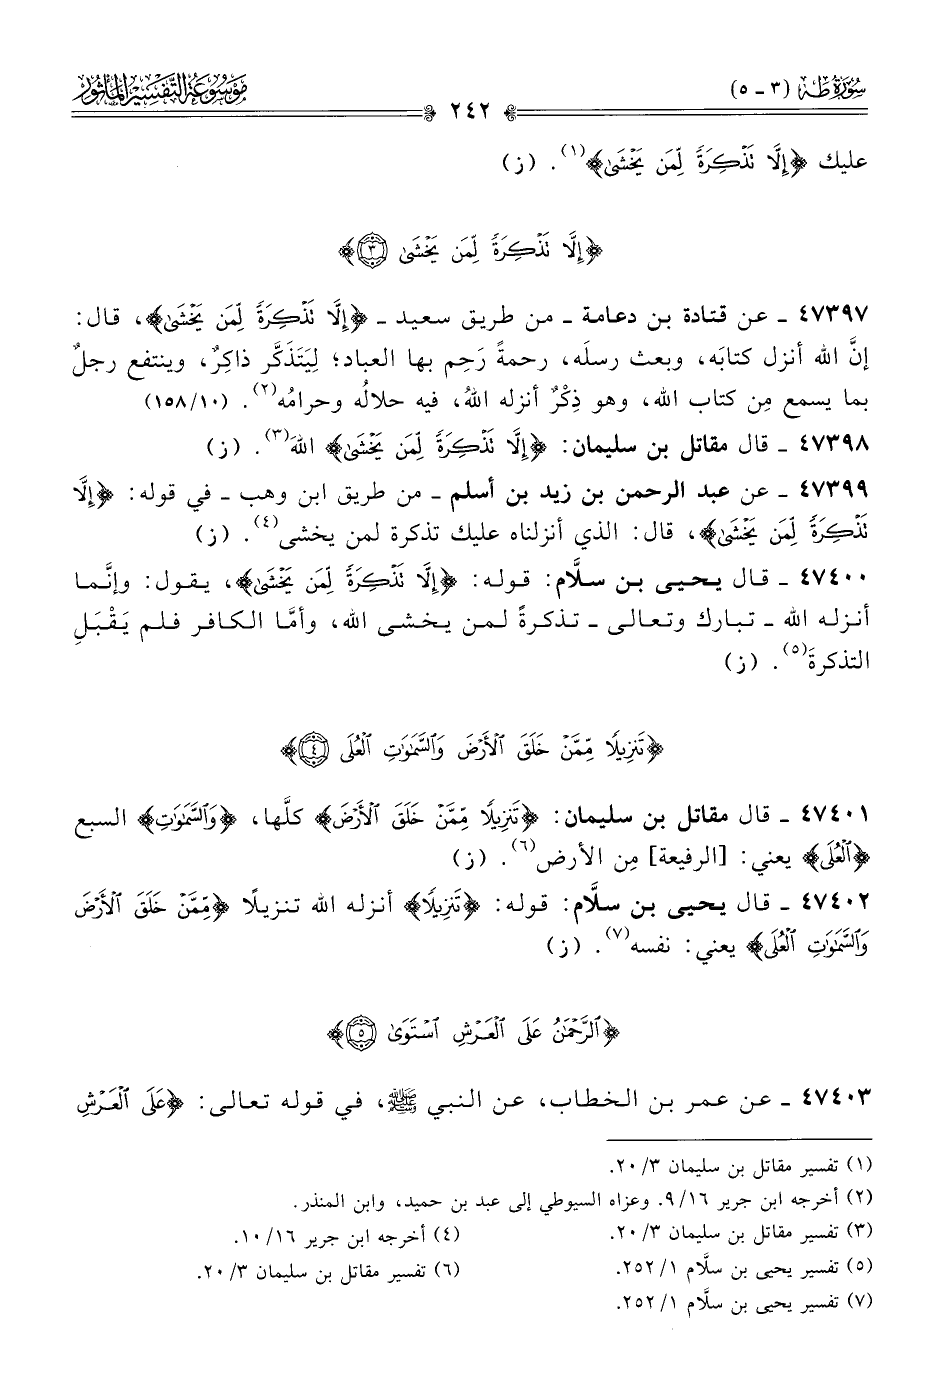 سُورَةُ طه (٣ - ٥)
٢٤٢
مَوْسُوعَةُ التَّفْسِيرِ المَأْثُورِ
عليك ﴿إِلَّا تَذْكِرَةً لِّمَن يَخْشَىٰ﴾(١). (ز)
﴿إِلَّا تَذْكِرَةً لِّمَن يَخْشَىٰ ٣﴾
٤٧٣٩٧ ـ عن قتادة بن دعامة ـ من طريق سعيد ـ ﴿إِلَّا تَذْكِرَةً لِّمَن يَخْشَىٰ﴾، قال:
إنَّ الله أنزل كتابَه، وبعث رسلَه، رحمةً رَحِم بها العباد؛ لِيَتَذَكَّر ذاكِرٌ، وينتفع رجلٌ
بما يسمع مِن كتاب الله، وهو ذِكْرٌ أنزله اللهُ، فيه حلالُه وحرامُه(٢). (١٥٨/١٠)
٤٧٣٩٨ ـ قال مقاتل بن سليمان: ﴿إِلَّا تَذْكِرَةً لِّمَن يَخْشَىٰ﴾ اللهَ(٣). (ز)
٤٧٣٩٩ ـ عن عبد الرحمن بن زيد بن أسلم ـ من طريق ابن وهب ـ في قوله: ﴿إِلَّا
تَذْكِرَةً لِّمَن يَخْشَىٰ﴾، قال: الذي أنزلناه عليك تذكرة لمن يخشى(٤). (ز)
٤٧٤٠٠ ـ قال يحيى بن سلَّام: قوله: ﴿إِلَّا تَذْكِرَةً لِّمَن يَخْشَىٰ﴾، يقول: وإنَّما
أنزله الله ـ تبارك وتعالى ـ تذكرةً لمن يخشى الله، وأمَّا الكافر فلم يَقْبَلِ
التذكرةَ(٥). (ز)
﴿تَنزِيلًا مِّمَّنْ خَلَقَ ٱلْأَرْضَ وَٱلسَّمَٰوَٰتِ ٱلْعُلَى ٤﴾
٤٧٤٠١ ـ قال مقاتل بن سليمان: ﴿تَنزِيلًا مِّمَّنْ خَلَقَ ٱلْأَرْضَ﴾ كلَّها، ﴿وَٱلسَّمَٰوَٰتِ﴾ السبع
﴿ٱلْعُلَى﴾ يعني: [الرفيعة] مِن الأرض(٦). (ز)
٤٧٤٠٢ ـ قال يحيى بن سلَّام: قوله: ﴿تَنزِيلًا﴾ أنزله الله تنزيلًا ﴿مِّمَّنْ خَلَقَ ٱلْأَرْضَ
وَٱلسَّمَٰوَٰتِ ٱلْعُلَى﴾ يعني: نفسه(٧). (ز)
﴿ٱلرَّحْمَٰنُ عَلَى ٱلْعَرْشِ ٱسْتَوَىٰ ٥﴾
٤٧٤٠٣ ـ عن عمر بن الخطاب، عن النبي ﷺ، في قوله تعالى: ﴿عَلَى ٱلْعَرْشِ
(١) تفسير مقاتل بن سليمان ٢٠/٣.
(٢) أخرجه ابن جرير ٩/١٦. وعزاه السيوطي إلى عبد بن حميد، وابن المنذر.
(٣) تفسير مقاتل بن سليمان ٢٠/٣.
(٤) أخرجه ابن جرير ١٠/١٦.
(٥) تفسير يحيى بن سلَّام ٢٥٢/١.
(٦) تفسير مقاتل بن سليمان ٢٠/٣.
(٧) تفسير يحيى بن سلَّام ٢٥٢/١.